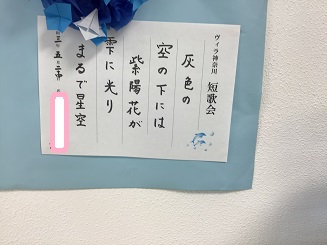 ヴィラ神奈川 短歌会
灰色の
空の下には
紫陽花が
雫に光り
まるで星空